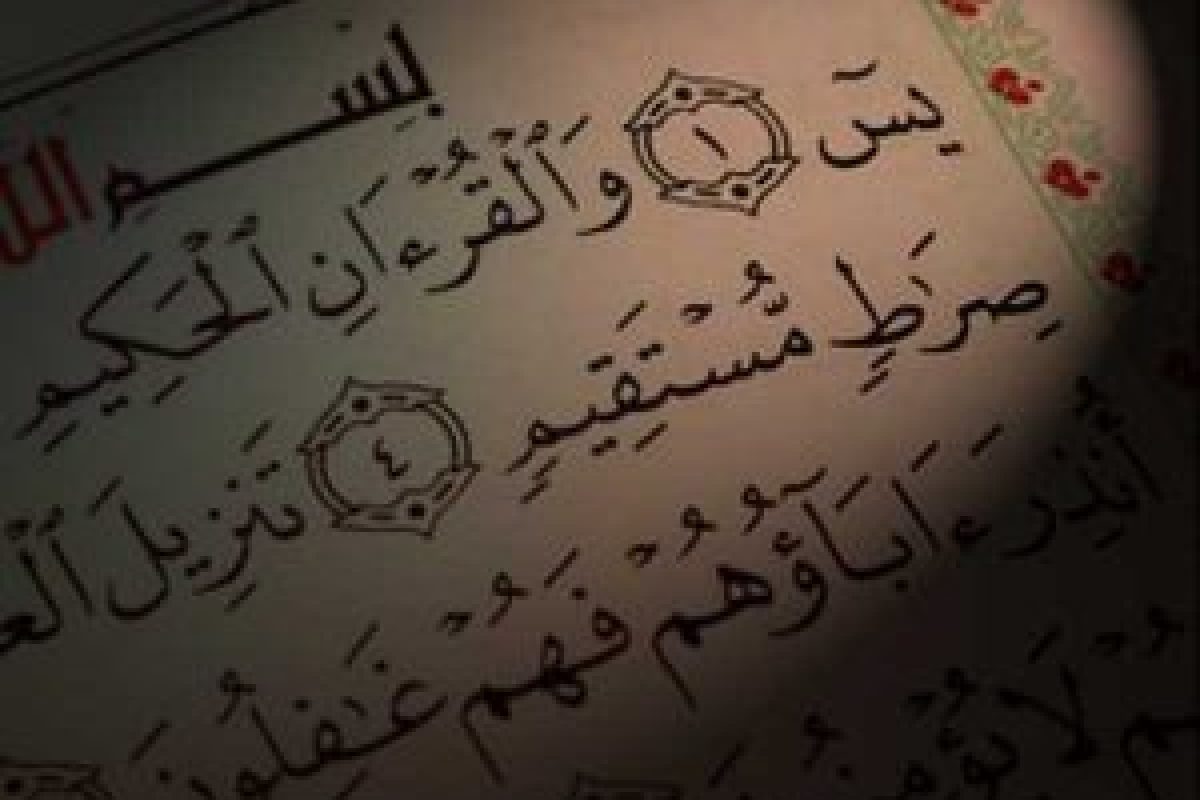 بِسْمِ الله
يسٓ ١ وَٱلْقُرْءَانِ ٱلْحَكِيمِ
صِرَٰطٍ مُّسْتَقِيمٍ ٤ تَنزِيلَ
أُنذِرَ ءَابَآؤُهُمْ فَهُمْ غَٰفِلُونَ
لَا